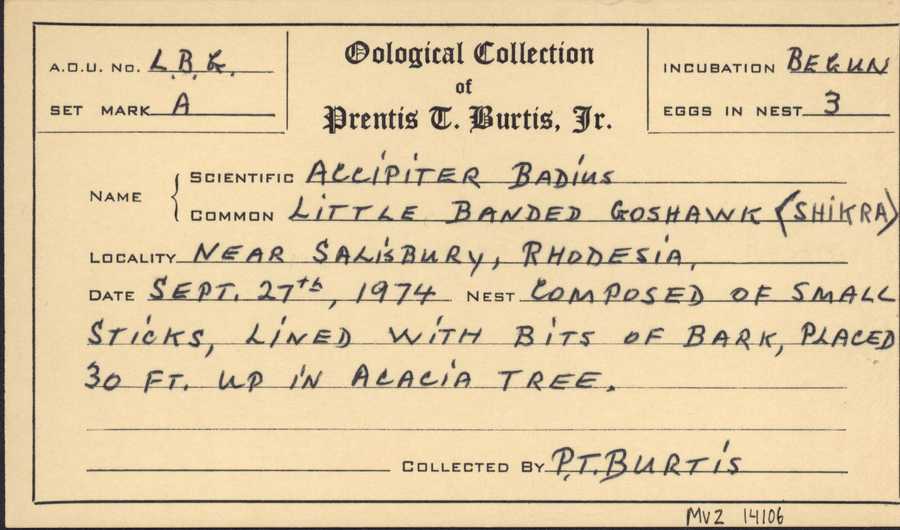 A.O.U. No. L.B.G.
SET MARK A
Oological Collection
of
Prentis T. Burtis, Jr.
INCUBATION BEGUN
EGGS IN NEST 3
NAME
SCIENTIFIC ACCIPITER BADIUS
COMMON LITTLE BANDED GOSHAWK (SHIKRA)
LOCALITY NEAR SALISBURY, RHODESIA,
DATE SEPT. 27th, 1974 NEST COMPOSED OF SMALL
STICKS, LINED WITH BITS OF BARK, PLACED
30 FT. UP IN ACACIA TREE.
COLLECTED BY P.T. BURTIS
MVZ 14106